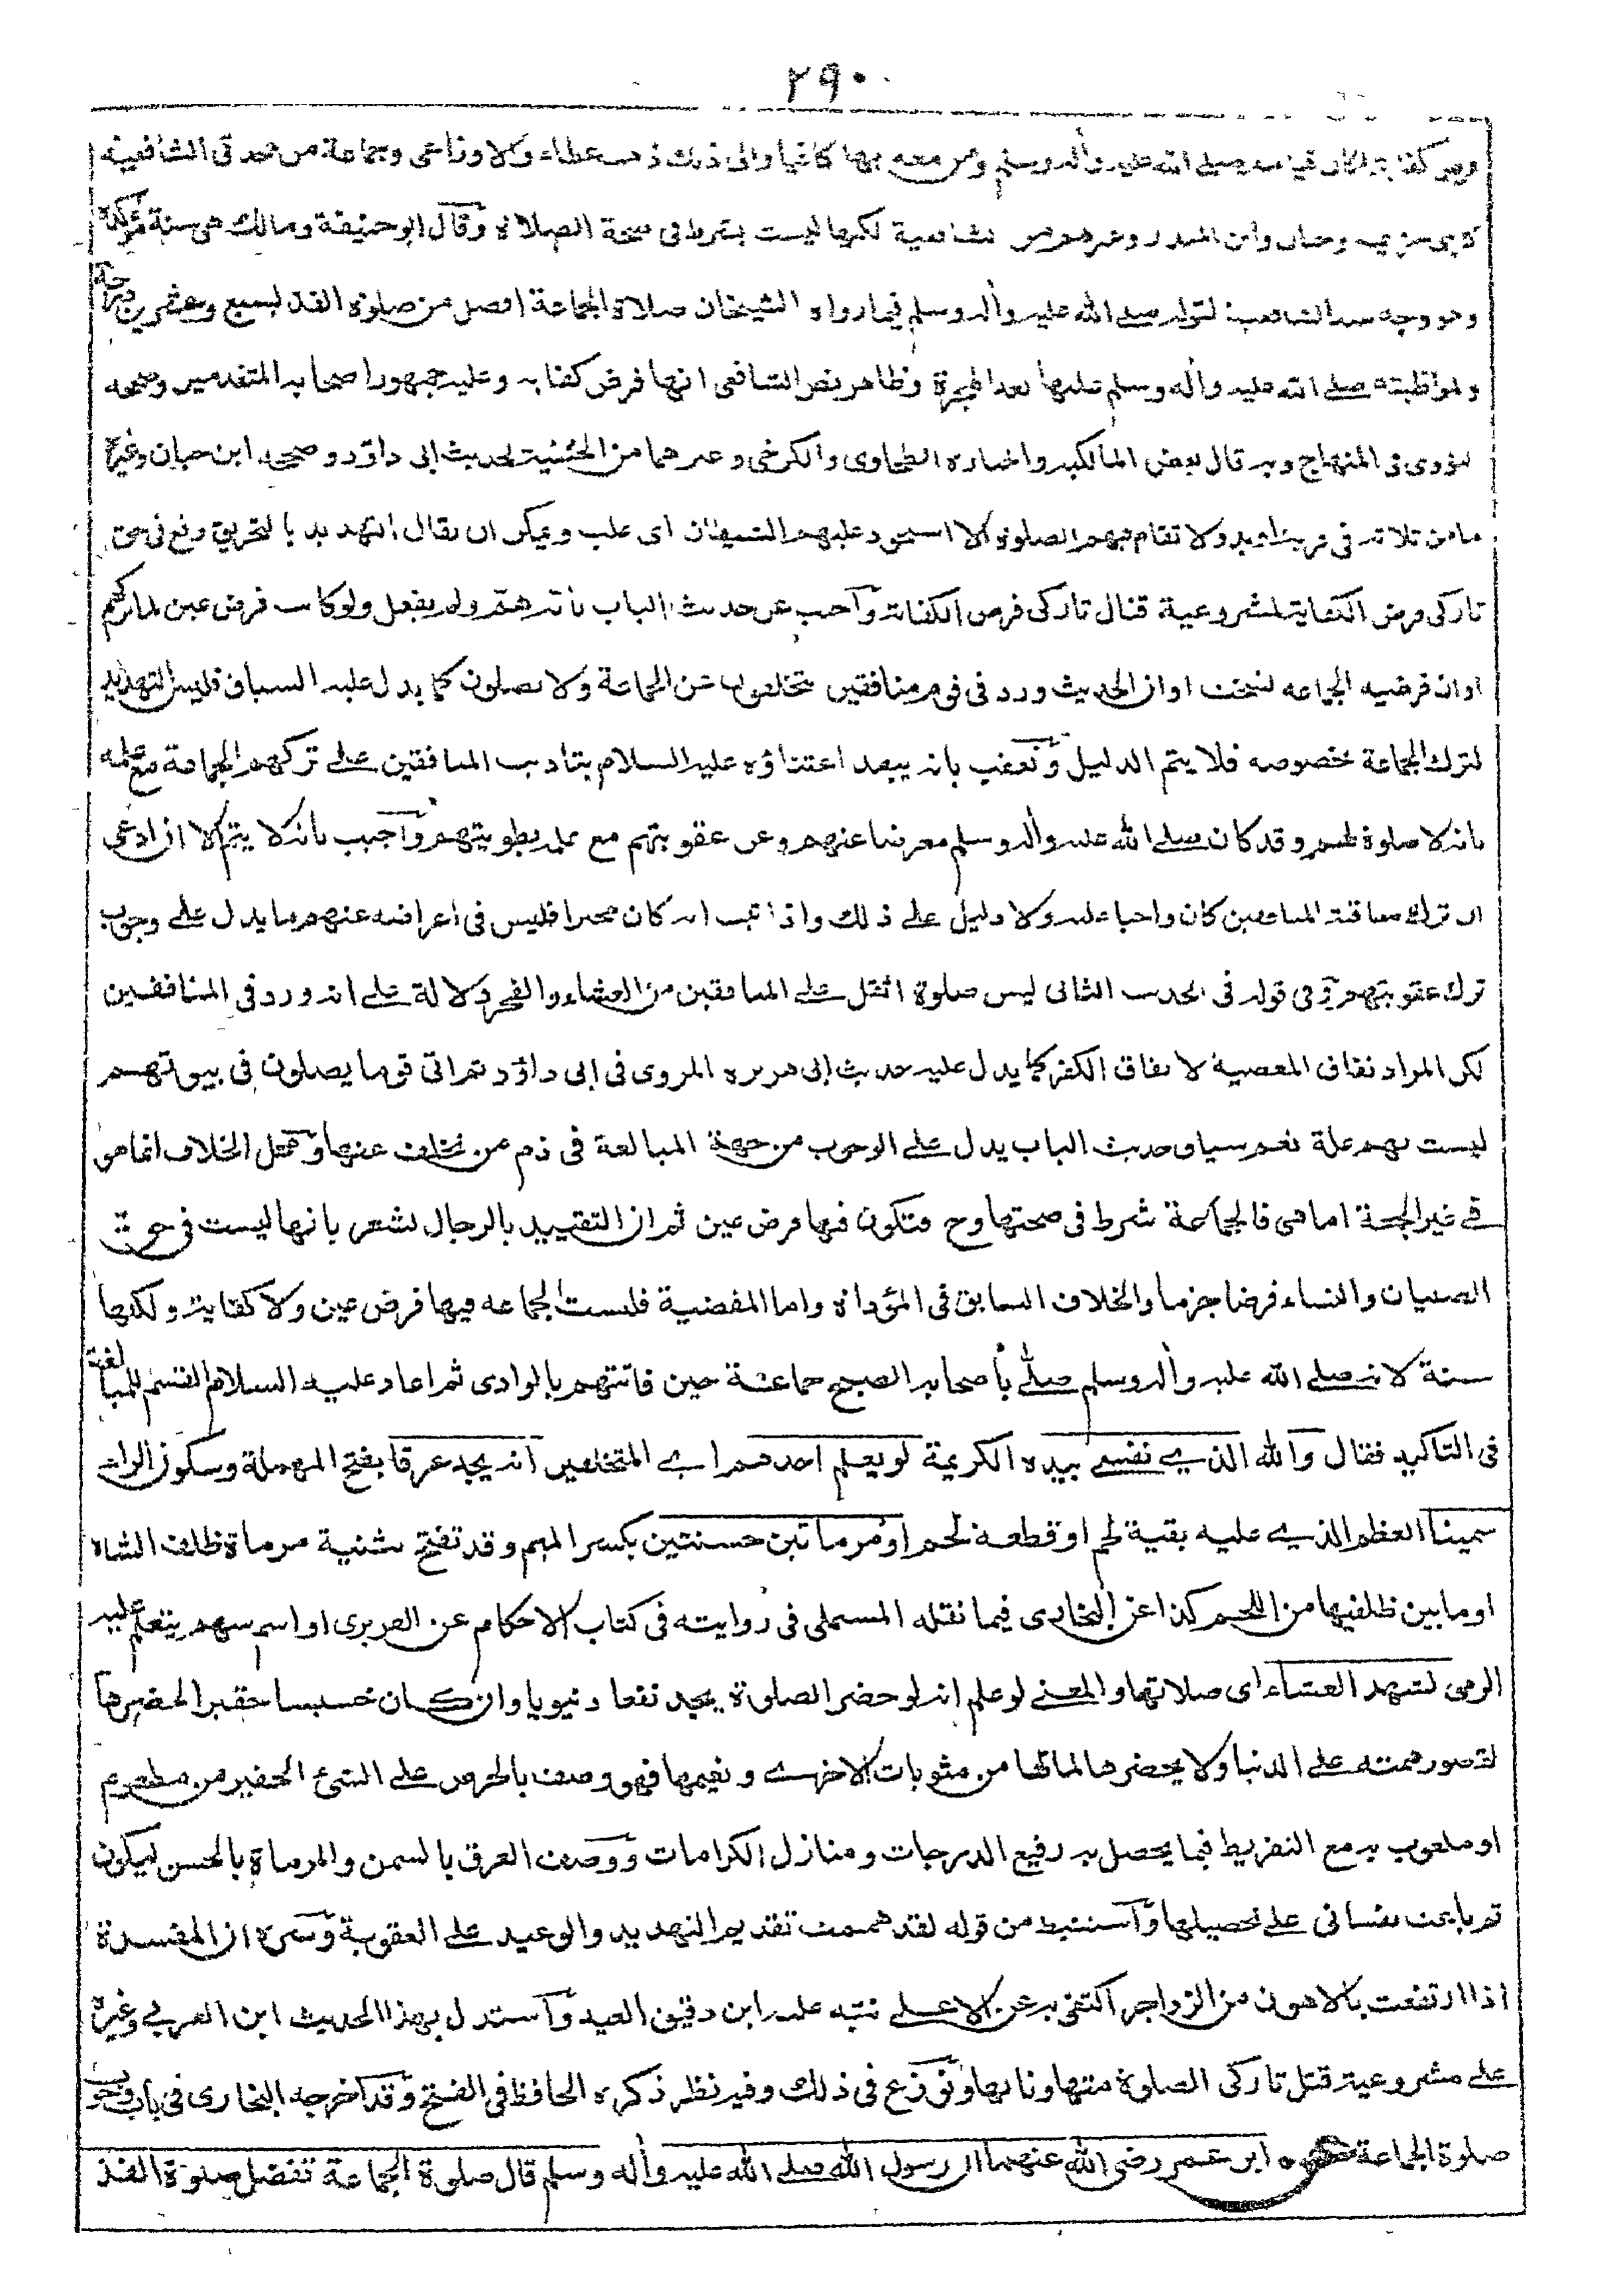 ٢٩٠
فرض كفاية لكان قيامه صلى الله عليه وأله وسلم ومن معه بها كافيا والى ذلك ذهب عطاء والاوزاعى وجماعة من محدثى الشافعية
كابى خزيمة وحبان وابن المنذر وغيرهم من الشافعية لكنها ليست بشرط فى صحة الصلاة وقال ابو حنيفة ومالك هى سنة مؤكدة
وهو وجه عند الشافعية لقوله صلى الله عليه وأله وسلم فيما رواه الشيخان صلاة الجماعة افضل من صلوة الفذ بسبع وعشرين درجة
ولمواظبته صلى الله عليه وأله وسلم عليها بعد الهجرة وظاهر نص الشافعى انها فرض كفاية وعليه جمهور اصحابه المتقدمين وصححه
النووى فى المنهاج وبه قال بعض المالكية واختاره الطحاوى والكرخى وغيرهما من الحنفية لحديث ابى داؤد وصححه ابن حبان وغيره
ما من ثلاثة فى قرية او بدو لا تقام فيهم الصلوة الا استحوذ عليهم الشيطان اى غلب ويمكن ان يقال التهديد بالتحريق وقع فى حق
تاركى فرض الكفاية لمشروعية قتال تاركى فرض الكفاية وآجيب عن حديث الباب بانه هم ولم يفعل ولو كانت فرض عين لما تركهم
او ان فرضية الجماعة نسخت او ان الحديث ورد فى قوم منافقين يتخلفون عن الجماعة ولا يصلون كما يدل عليه السياق فليس التهديد
لترك الجماعة بخصوصه فلا يتم الدليل وتعقب بانه يبعد اعتناؤه عليه السلام بتاديب المنافقين على تركهم الجماعة مع علمه
بانه لا صلوة لهم وقد كان صلى الله عليه وأله وسلم معرضا عنهم وعن عقوبتهم مع علمه بطويتهم وآجيب بانه لا يتم الا ان ادعى
ان ترك معاقبة المنافقين كان واجبا عليه ولا دليل على ذلك واذا ثبت انه كان مخيرا فليس فى اعراضه عنهم ما يدل على وجوب
ترك عقوبتهم وفى قوله فى الحديث الثانى ليس صلوة اثقل على المنافقين من العشاء والفجر دلالة على انه ورد فى المنافقين
لكن المراد نفاق المعصية لا نفاق الكفر كما يدل عليه حديث ابى هريرة المروى فى ابى داؤد ثم اتى قوما يصلون فى بيوتهم
ليست بهم علة نعم سياق حديث الباب يدل على الوجوب من جهة المبالغة فى ذم من تخلف عنها ومحل الخلاف انما هو
فى غير الجمعة اما هى فالجماعة شرط فى صحتها وح فتكون فيها فرض عين ثم ان التقييد بالرجال يشعر بانها ليست فى حق
الصبيان والنساء فرضا جزما والخلاف السابق فى المؤداة واما المقضية فليست الجماعة فيها فرض عين ولا كفاية ولكنها
سنة لانه صلى الله عليه وأله وسلم صلى بأصحابه الصبح جماعة حين فاتتهم بالوادى ثم اعاد عليه السلام القسم للمبالغة
فى التاكيد فقال والله الذى نفسى بيده الكريمة لو يعلم احدهم اى المتخلفين انه يجد عرقا بفتح المهملة وسكون الراء
سمينا العظم الذى عليه بقية لحم او قطعة لحم او مرماتين حسنتين بكسر الميم وقد تفتح تثنية مرماة ظلف الشاة
او ما بين ظلفيها من اللحم كذا عن البخارى فيما نقله المستملى فى روايته فى كتاب الاحكام عن الفربرى او اسم سهم يتعلم عليه
الرمى لشهد العشاء اى صلاتها والمعنى لو علم انه لو حضر الصلوة يجد نفعا دنيويا وان كان خسيسا حقيرا لحضرها
لقصور همته على الدنيا ولا يحضرها لما لها من مثوبات الاخرى ونعيمها فهو وصف بالحرص على الشئ الحقير من مطعوم
او ملعوب به مع التفريط فيما يحصل به رفيع الدرجات ومنازل الكرامات ووصف العرق بالسمن والمرماة بالحسن ليكون
ثم باعث نفسانى على تحصيلها وآستنبط من قوله لقد هممت تقديم التهديد والوعيد على العقوبة وسره ان المفسدة
اذا ارتفعت بالاهون من الزواجر اكتفى به عن الاعلى نبه عليه ابن دقيق العيد وآستدل بهذا الحديث ابن العربى وغيره
على مشروعية قتل تاركى الصلوة متهاونا بها ونوزع فى ذلك وفيه نظر ذكره الحافظ فى الفتح وقد اخرجه البخارى فى باب وجوب
صلوة الجماعة عن ابن عمر رضى الله عنهما ان رسول الله صلى الله عليه وأله وسلم قال صلوة الجماعة تفضل صلوة الفذ